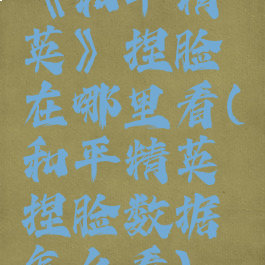 《和平精
英》捏脸
在哪里看(
和平精英
捏脸数据
怎么看)